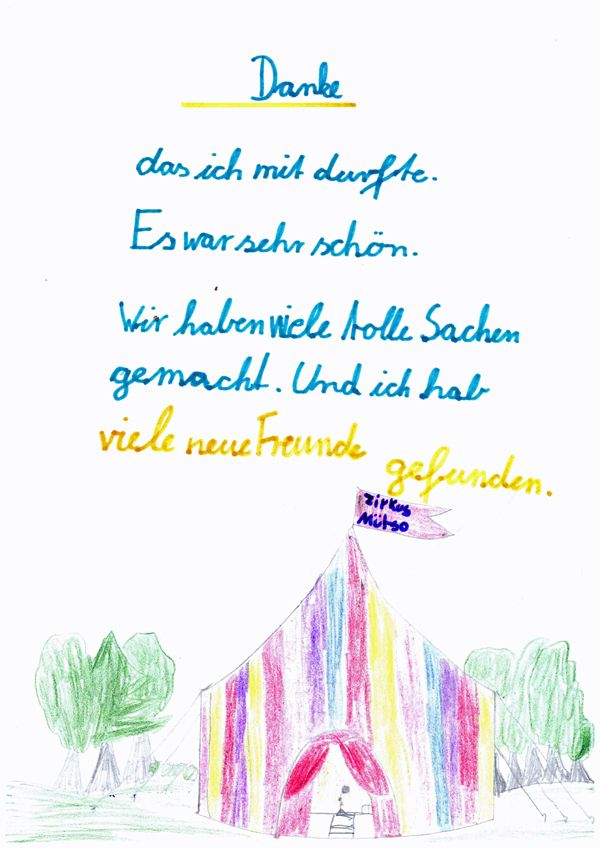 Danke
das ich mit durfte.
Es war sehr schön.
Wir haben viele tolle Sachen
gemacht. Und ich hab
viele neue Freunde gefunden.
Zirkus
Mütso